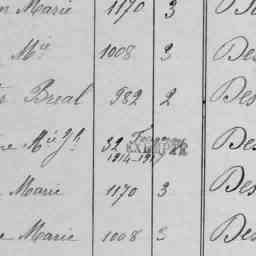 Marie 1170 3
Mie 1008 3 Des
Breal 982 2 Des
Mie Jh 32 Des
1914-191
Marie 1170 3 Des
Marie 1008 3 Des